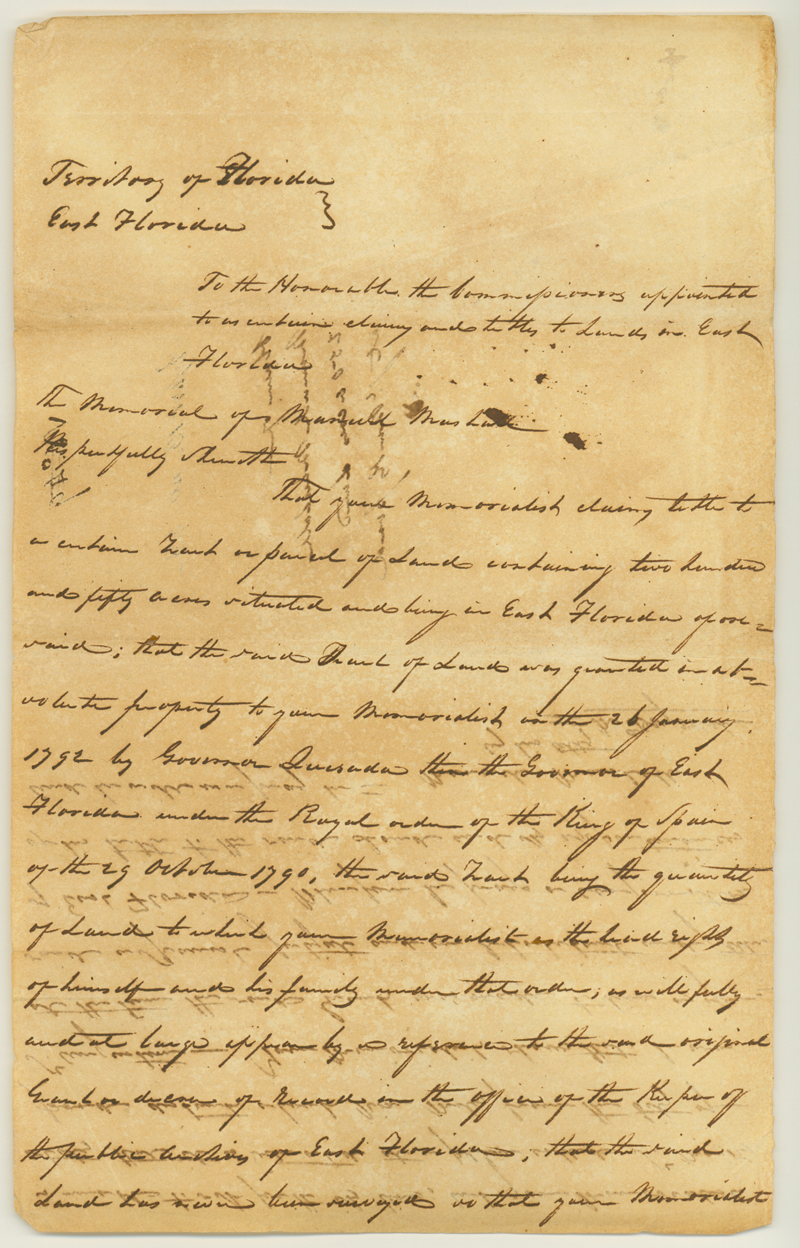 Territory of Florida }
East Florida
To the Honorable the Commissioners appointed
to ascertain claims and titles to Lands in East
Florida
The Memorial of Manuel
Respectfully Sheweth
That your Memorialist claims title to
a certain Tract or parcel of Land containing two hundred
and fifty acres situated and being in East Florida afore=
said; that the said Tract of Land was granted in ab=
solute property to your Memorialist on the 26 January
1792 by Governor Quesada then the Governor of East
Florida under the Royal order of the King of Spain
of the 29 October 1790, the said Tract being the quantity
of Land to which your Memorialist as the head right
of himself and his family under that order, as will fully
and at large appear by a reference to the said original
Grant or decree of Record in the office of the Keeper of
the public Archives of East Florida; that the said
Land has never been surveyed so that your Memorialist